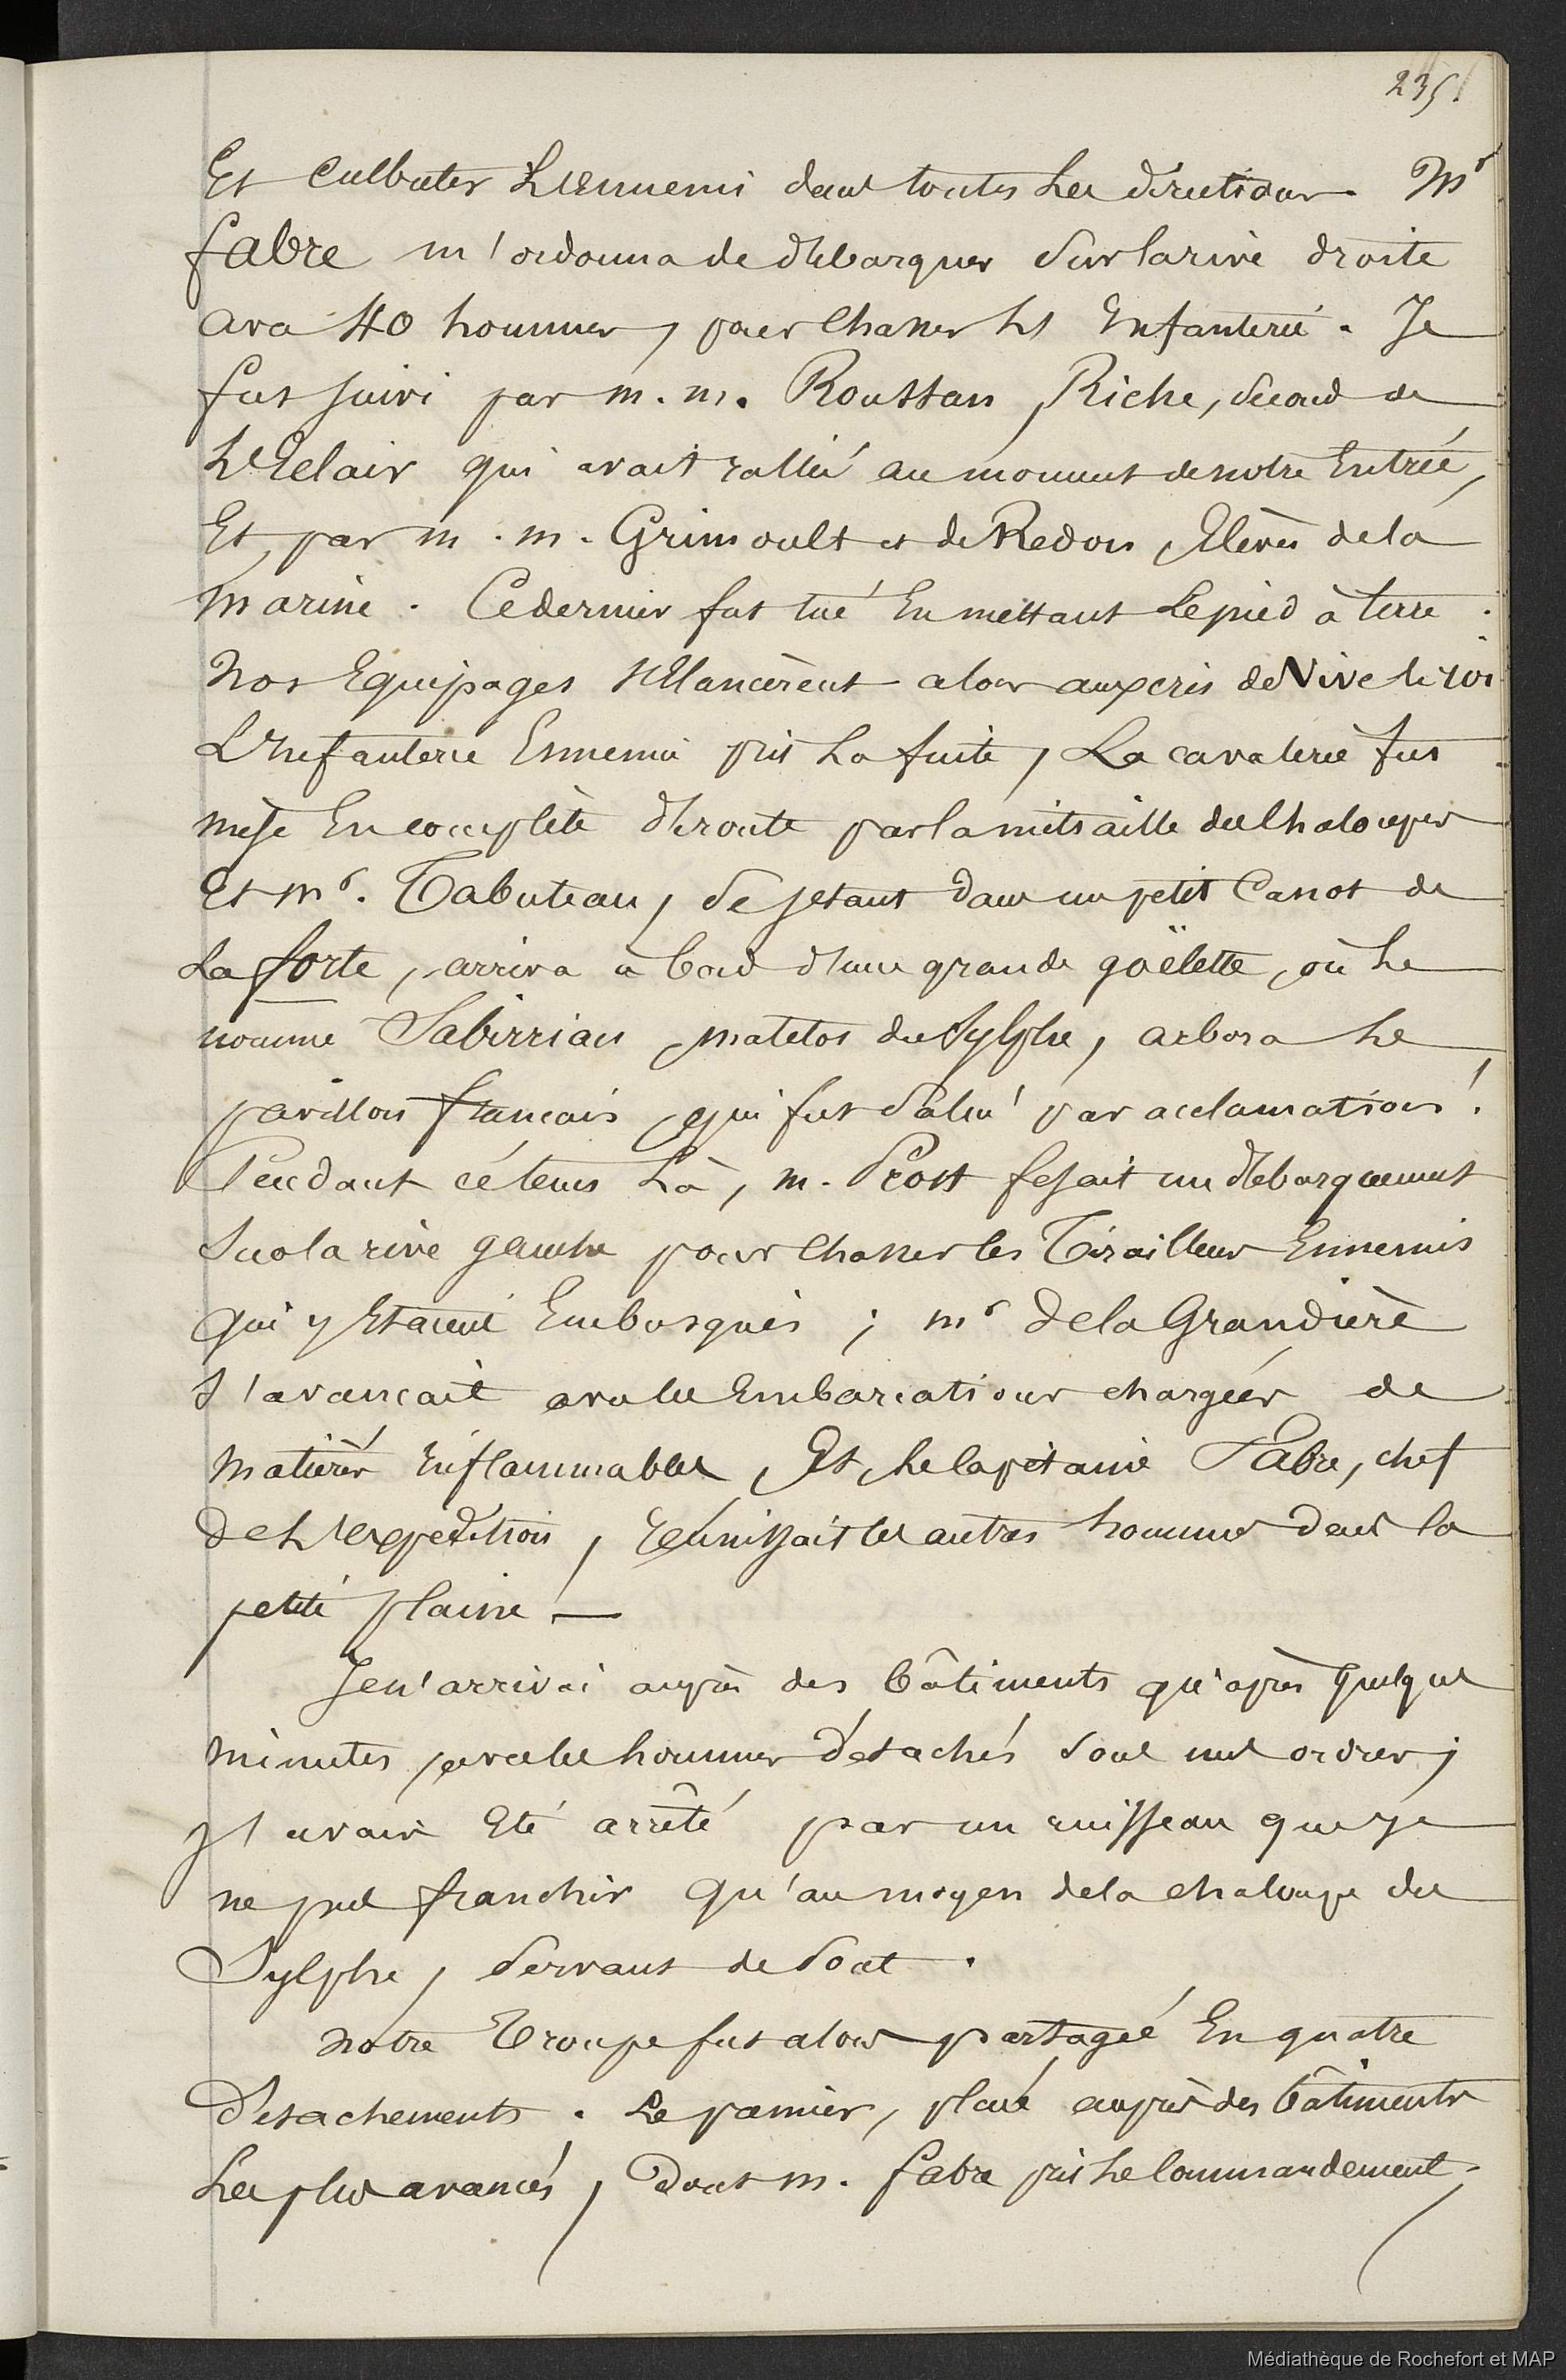 235.
Et culbuter L'Ennemi dans toutes Les directions. Mr
fabre m'ordonna de debarquer Sur la rive droite
avec 40 hommes, pour Chasser L'Enfanterie. Je
fus suivi par m. m. Roustan, Riche, Second de
L'Eclair qui avait rallié au moment de notre Entrée,
Et par m. m. Grimoult et de Redon, Elèves de la
marine. Ce dernier fut tué En mettant Le pied à terre.
Nos Equipages s'Elancèrent alors aux cris de Vive le roi
L'Infanterie Ennemie prit La fuite, La cavalerie fut
mise En complète déroute par la mitraille des Chaloupes
Et mr. Tabuteau, Se jetant dans un petit Canot de
La forte, arriva à bord d'une grande goëlette, où Le
nomme Sabirrian, matelos du Sylphe, arbora Le
pavillon français, qui fut Salué par acclamation!
Pendant ce tems Là, m. Prost fesait un debarquement
Sur la rive gauche pour Chasser les Tirailleurs Ennemis
qui y Etaient Embusqués; mr de la Grandière
s'avançait avec les Embarcations chargées de
matières inflammables, Et Le Capitaine Fabre, chef
de L'expedition, réunissait les autres hommes dans la
petite plaine —
Je n'arrivai auprès des bâtiments qu'après quelques
minutes, avec les hommes détachés sous mes ordres;
j'avais Eté arrêté par un ruisseau que je
ne pus franchir qu'au moyen de la chaloupe du
Sylphe, Servant de Pont.
Notre Troupe fut alors partagée En quatre
Détachements. Le premier, placé auprès des bâtiments
Les plus avancés, Dont m. fabre prit Le Commandement;
Médiathèque de Rochefort et MAP